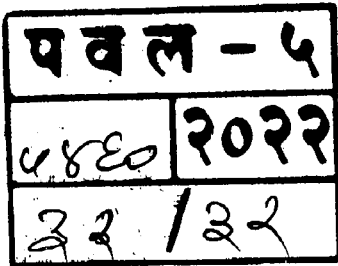 पवल - ५
५४६० २०२२
३२ / ३२